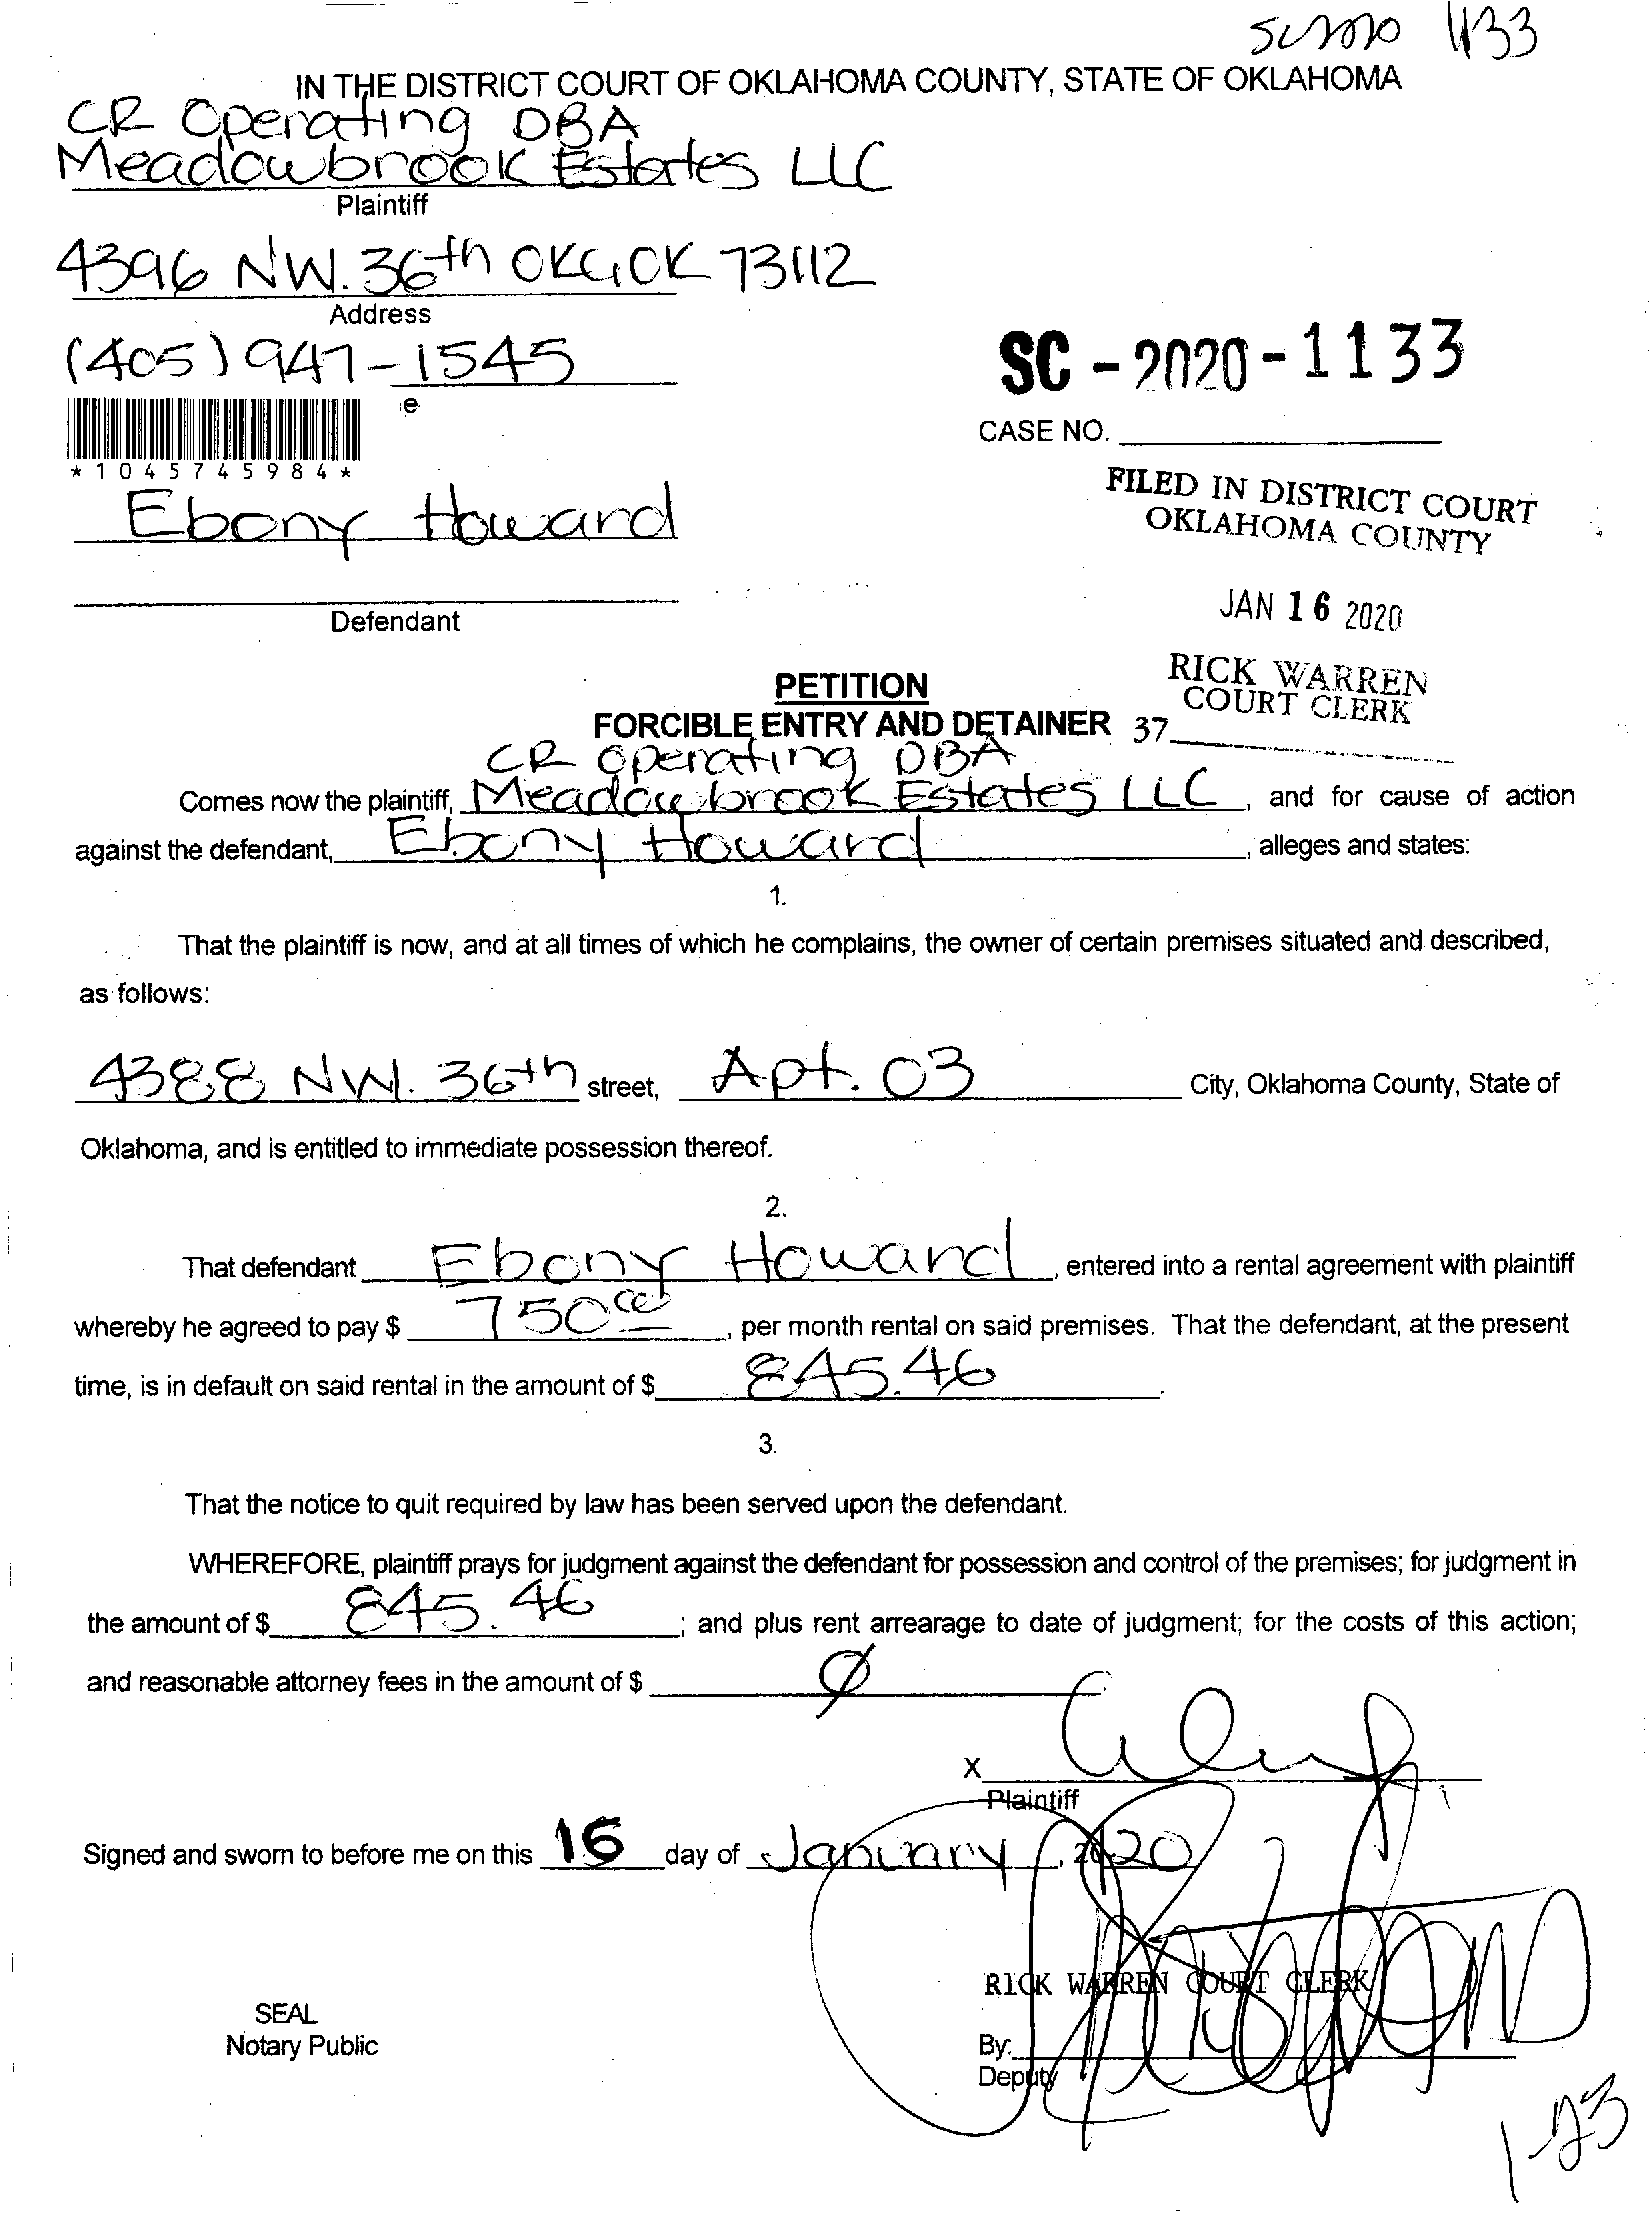 SC2020 1133
IN THE DISTRICT COURT OF OKLAHOMA COUNTY, STATE OF OKLAHOMA
CR Operating DBA
Meadowbrook Estates LLC
Plaintiff
4396 NW. 36th OKC OK 73112
Address
(405) 947-1545
e
SC - 2020 - 1133
CASE NO.
*1045745984*
FILED IN DISTRICT COURT
OKLAHOMA COUNTY
Ebony Howard
Defendant
JAN 16 2020
RICK WARREN
COURT CLERK
37
PETITION
FORCIBLE ENTRY AND DETAINER
CR Operating DBA
Comes now the plaintiff, Meadowbrook Estates LLC, and for cause of action
against the defendant, Ebony Howard, alleges and states:
1.
That the plaintiff is now, and at all times of which he complains, the owner of certain premises situated and described,
as follows:
4388 NW. 36th street, Apt. 03 City, Oklahoma County, State of
Oklahoma, and is entitled to immediate possession thereof.
2.
That defendant Ebony Howard, entered into a rental agreement with plaintiff
whereby he agreed to pay $ 750.00, per month rental on said premises. That the defendant, at the present
time, is in default on said rental in the amount of $ 845.46.
3.
That the notice to quit required by law has been served upon the defendant.
WHEREFORE, plaintiff prays for judgment against the defendant for possession and control of the premises; for judgment in
the amount of $ 845.46; and plus rent arrearage to date of judgment; for the costs of this action;
and reasonable attorney fees in the amount of $ Ø
X
Plaintiff
Signed and sworn to before me on this 16 day of January, 2020
RICK WARREN COURT CLERK
SEAL
Notary Public
By:
Deputy
1-23